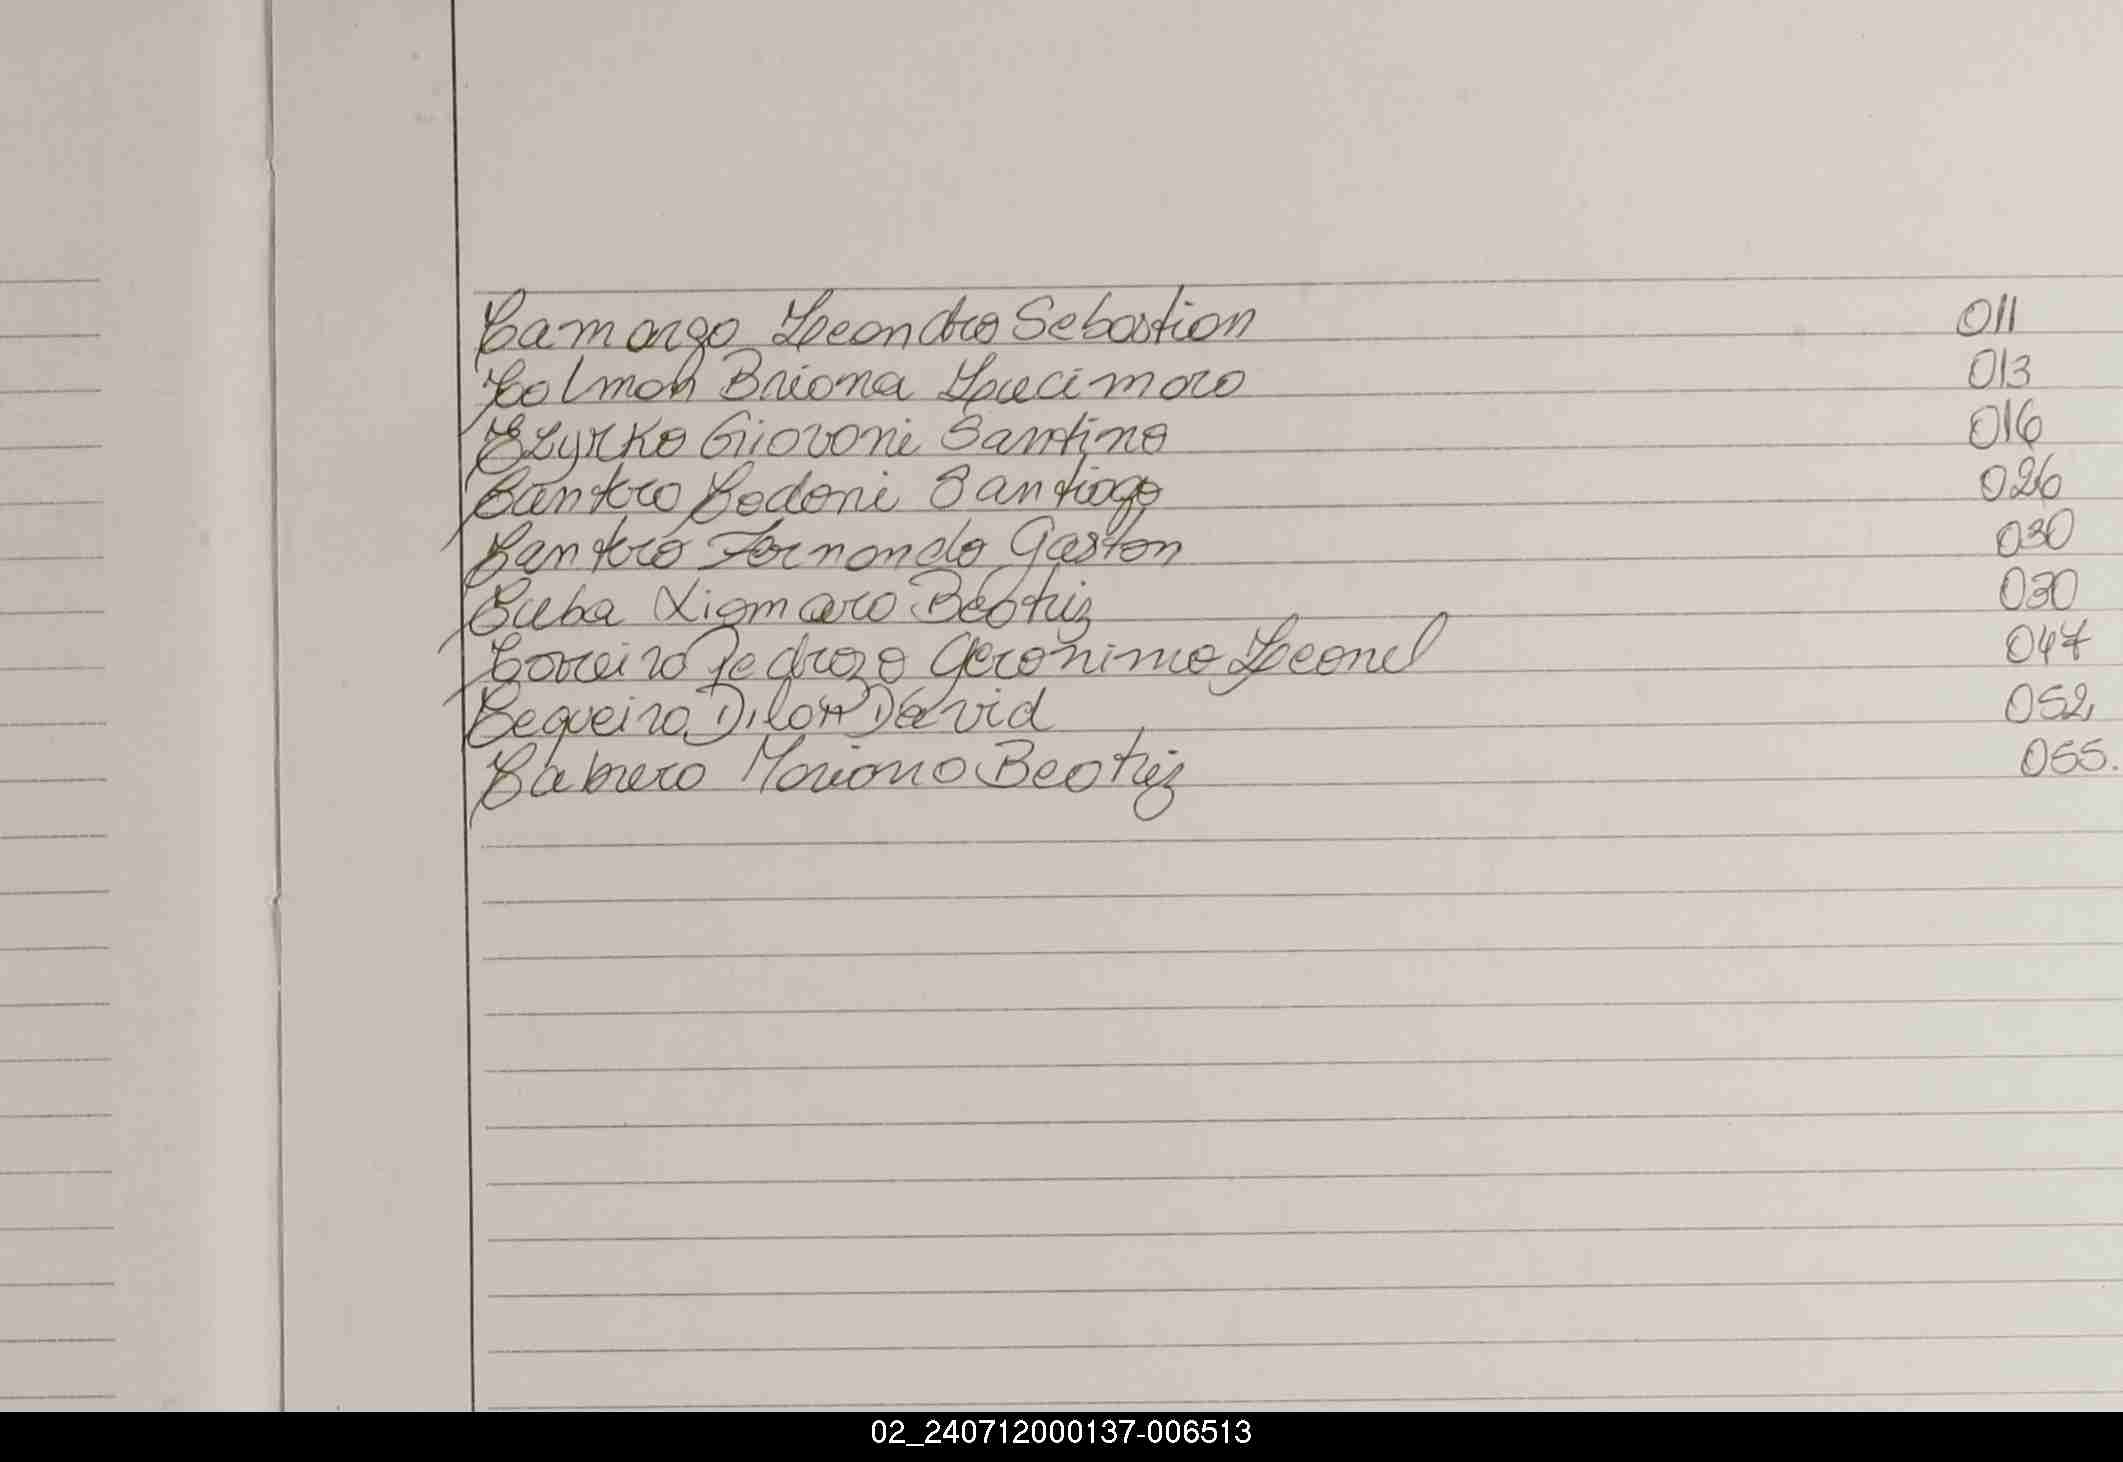 Camargo Leandro Sebastian 011
Colman Briana Luzimara 013
Czyrko Giovani Santino 016
Cantero Codani Santiago 026
Cantero Fernando Gaston 030
Cuba Xiomara Beatriz 030
Correiro Pedrozo Geronimo Leonel 047
Cequeira Dilan David 052
Cabrero Mariano Beatriz 055.
02_240712000137-006513